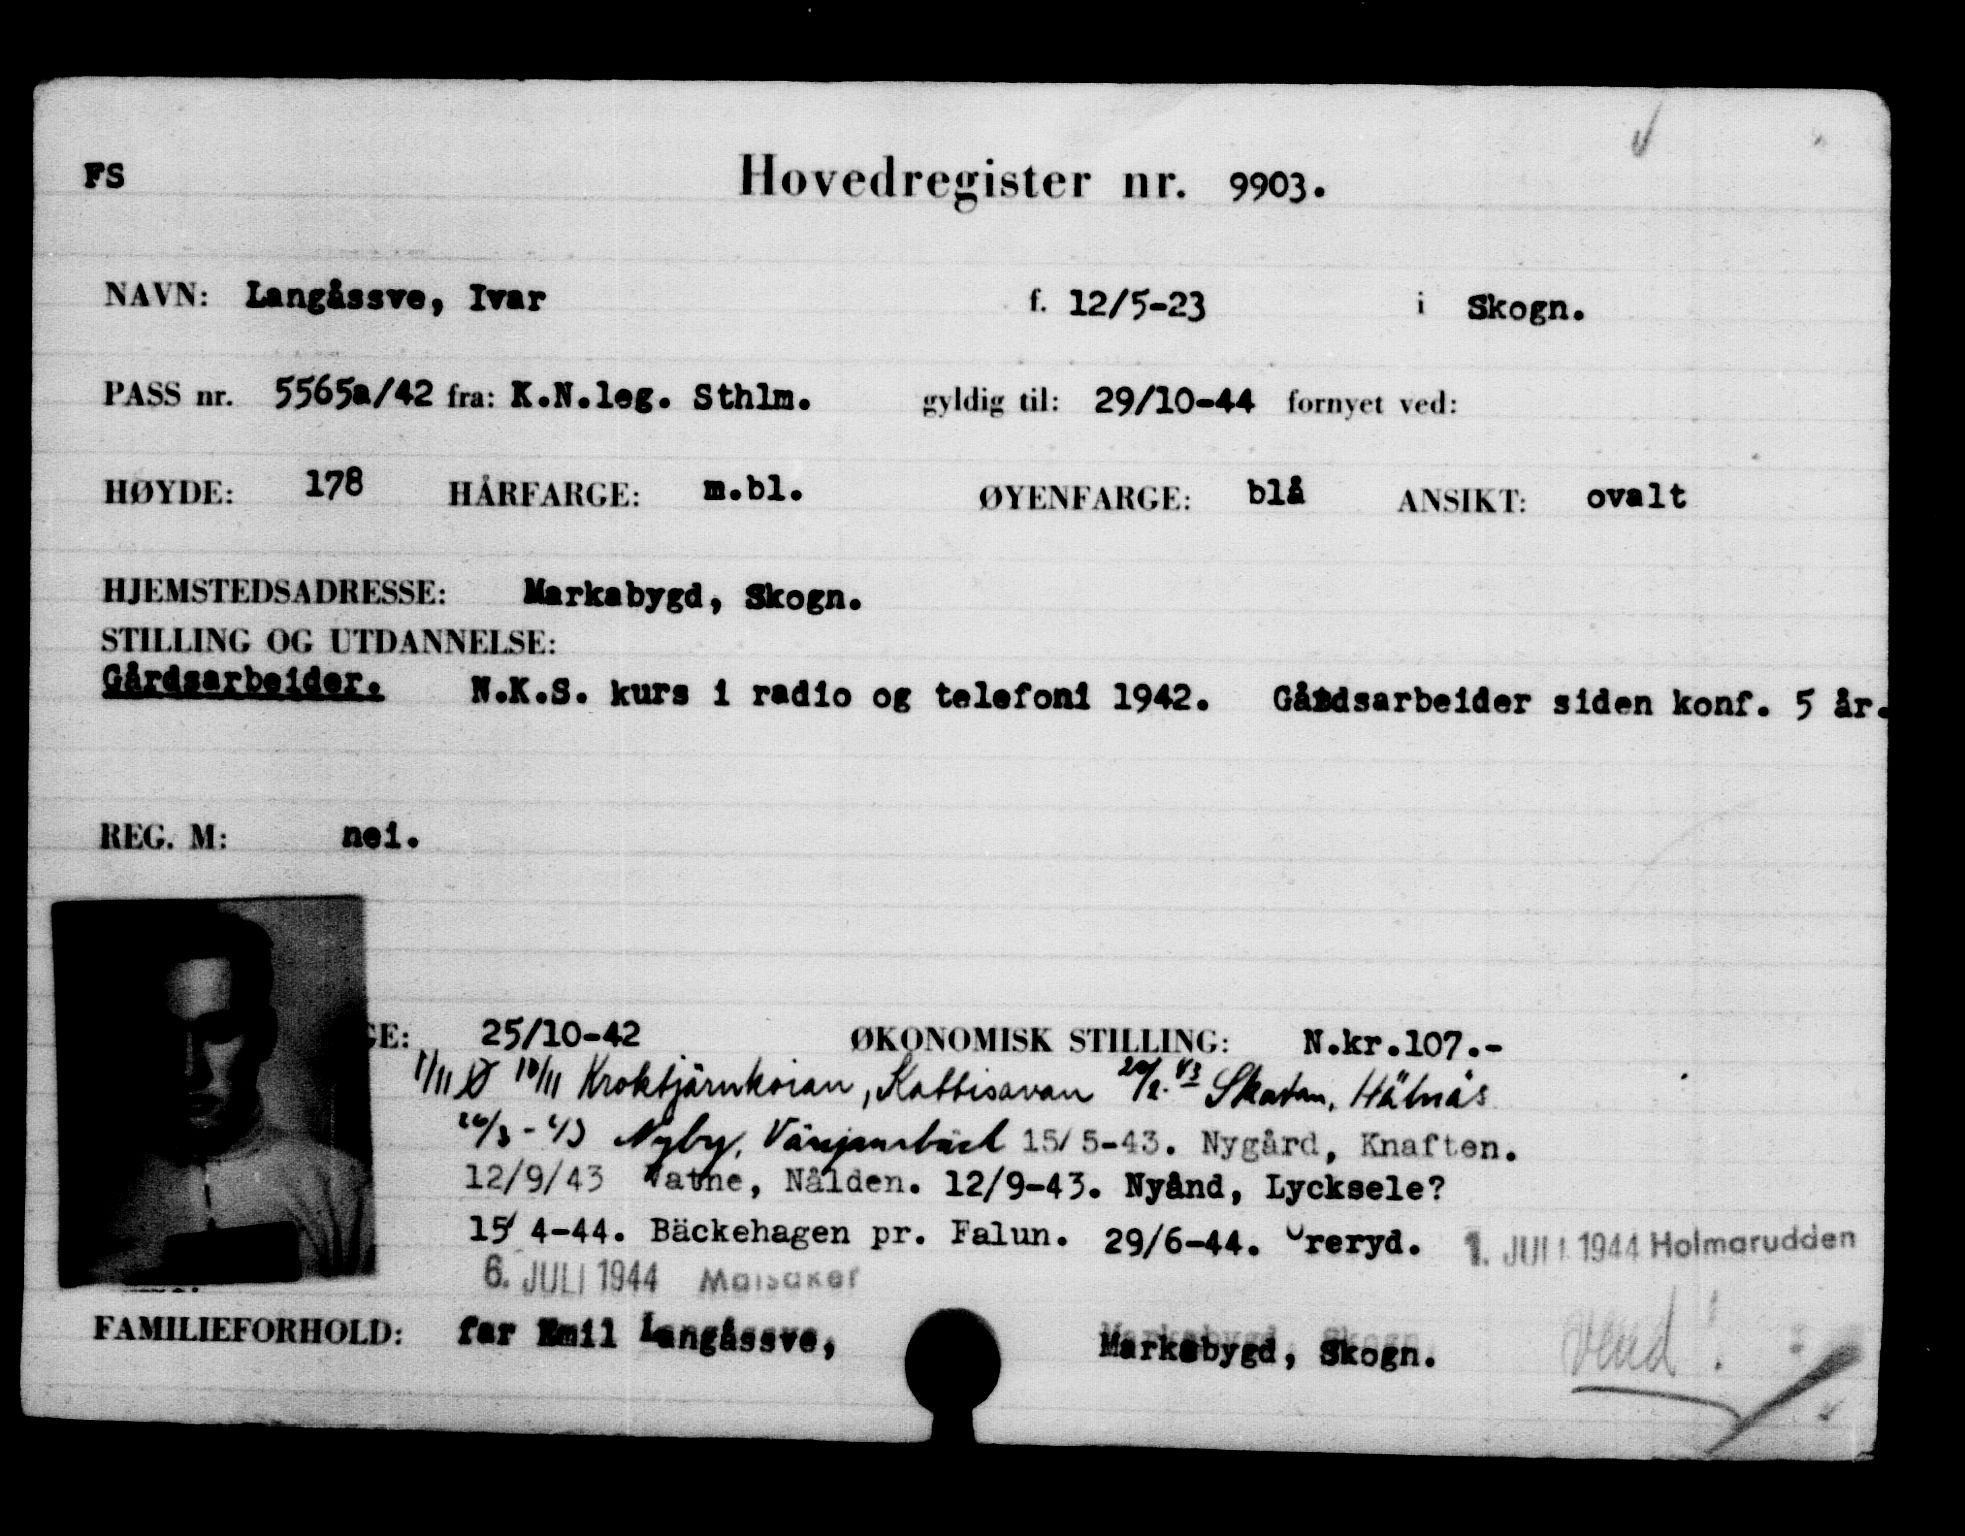 FS
Hovedregister nr. 9903.
NAVN: Langåssve, Ivar f. 12/5-23 i Skogn.
PASS nr. 5565a/42 fra: K.N.leg. Sthlm. gyldig til: 29/10-44 fornyet ved:
HØYDE: 178 HÅRFARGE: m.bl. ØYENFARGE: blå ANSIKT: ovalt
HJEMSTEDSADRESSE: Markabygd, Skogn.
STILLING OG UTDANNELSE:
Gårdsarbeider. N.K.S. kurs i radio og telefoni 1942. Gårdsarbeider siden konf. 5 år.
REG. M: nei.
GE: 25/10-42 ØKONOMISK STILLING: N.kr.107.-
1/11 Ø 10/11 Kroktjärnkoian, Kattisavan 20/2. 43 Skatan, Hälnäs
Nyby, 15/5-43. Nygård, Knaften.
12/9/43 Vatne, Nälden. 12/9-43. Nyånd, Lycksele?
15/4-44. Bäckehagen pr. Falun. 29/6-44. Ureryd. 1. JULI 1944 Holmarudden
6. JULI 1944 Mälsåker
FAMILIEFORHOLD: far Emil Langåssve, Markabygd, Skogn.
Vend!